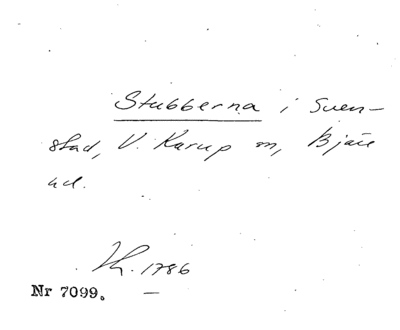 Stubberna i Sven-
stad, V. Karup m, Bjäre
hd.
Kh. 1786
Nr 7099.